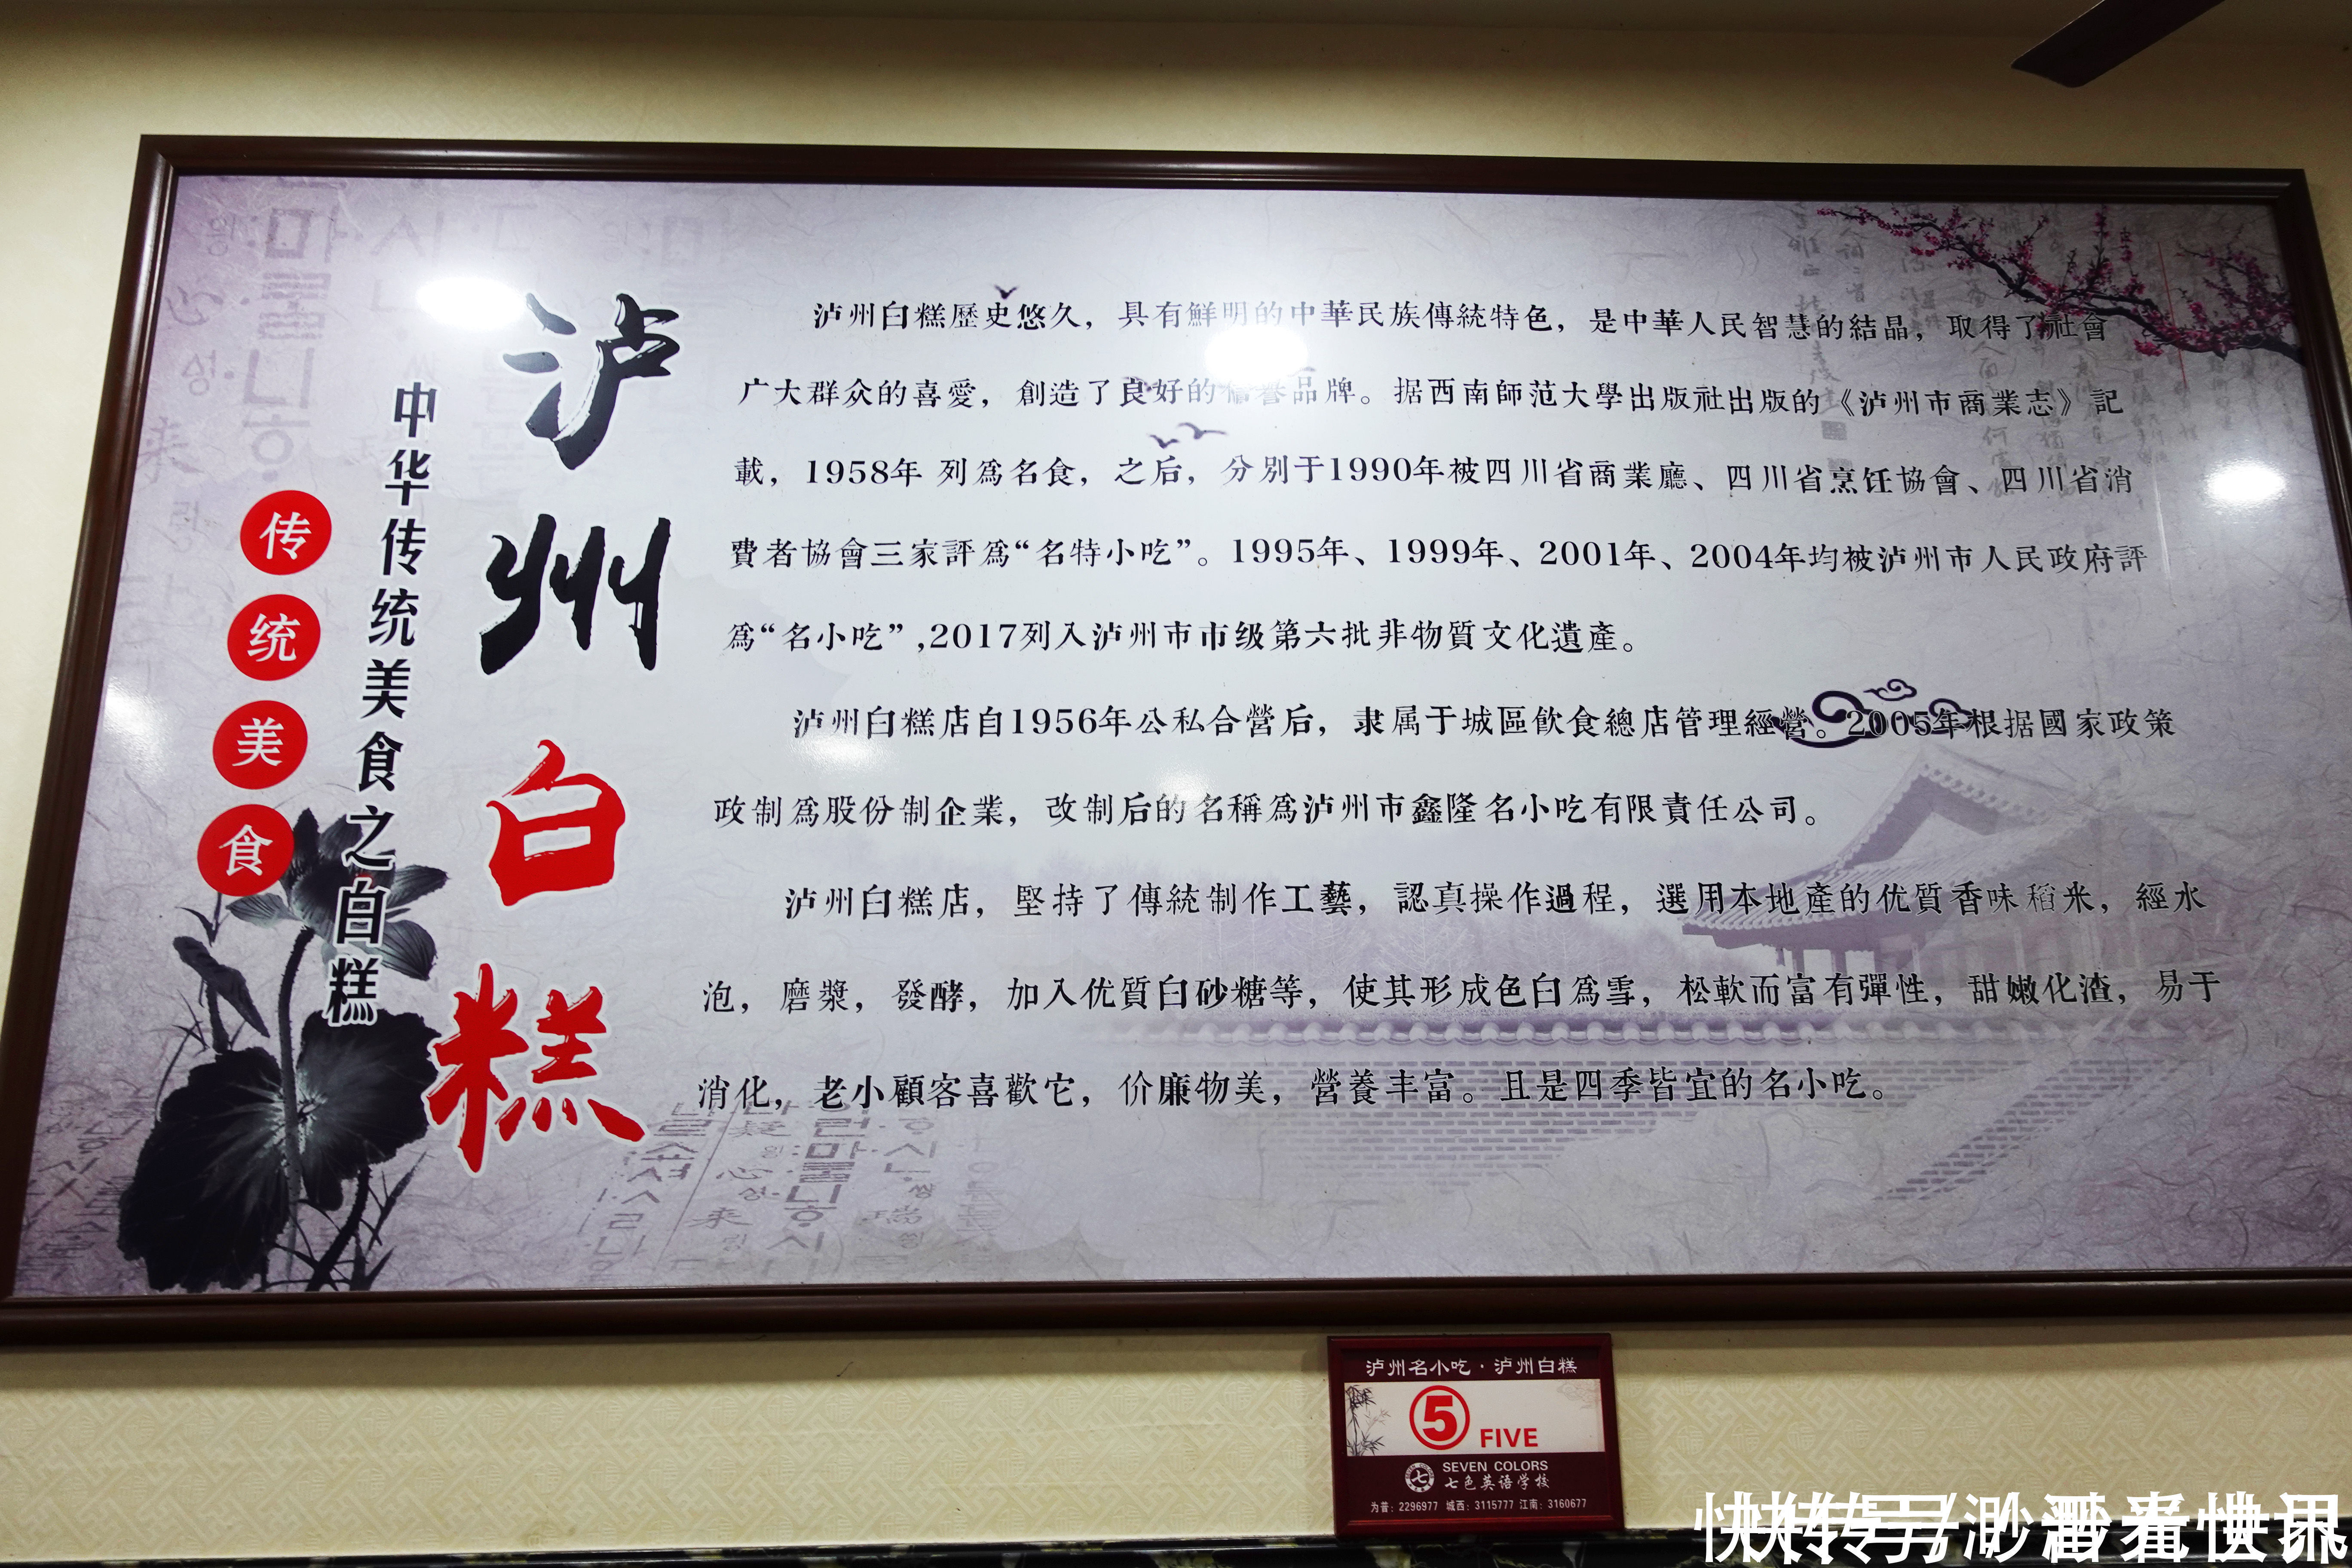 泸州白糕
中华传统美食之白糕
传统美食
泸州白糕歷史悠久，具有鮮明的中華民族傳統特色，是中華人民智慧的結晶，取得了社會
广大群众的喜愛，創造了良好的信譽品牌。据西南師范大學出版社出版的《泸州市商業志》記
載，1958年 列爲名食，之后，分別于1990年被四川省商業廳、四川省烹饪協會、四川省消
費者協會三家評爲“名特小吃”。1995年、1999年、2001年、2004年均被泸州市人民政府評
爲“名小吃”,2017列入泸州市市级第六批非物質文化遺產。
泸州白糕店自1956年公私合營后，隶属于城區飲食總店管理經營。2005年根据國家政策
政制爲股份制企業，改制后的名稱爲泸州市鑫隆名小吃有限責任公司。
泸州白糕店，堅持了傳統制作工藝，認真操作過程，選用本地產的优質香味稻米，經水
泡，磨漿，發酵，加入优質白砂糖等，使其形成色白爲雪，松軟而富有彈性，甜嫩化渣，易于
消化，老小顧客喜歡它，价廉物美，營養丰富。且是四季皆宜的名小吃。
泸州名小吃·泸州白糕
5 FIVE
SEVEN COLORS
七色英语学校
为普：2296977 城西：3115777 江南：3160677